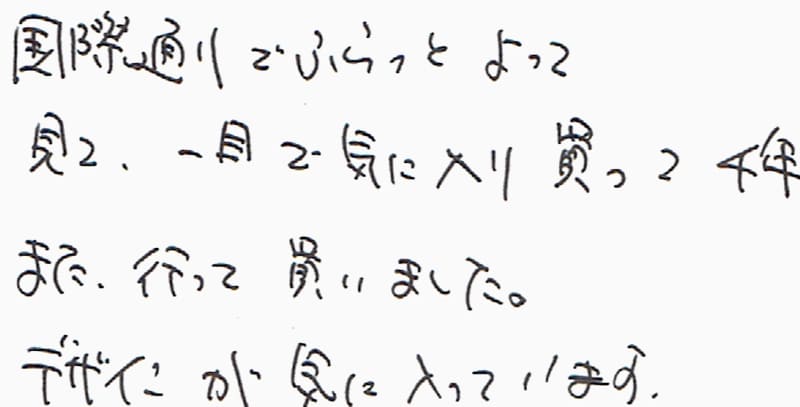 国際通りでふらっとよって
見て、一目で気に入り買って今年
また、行って買いました。
デザインが気に入っています。